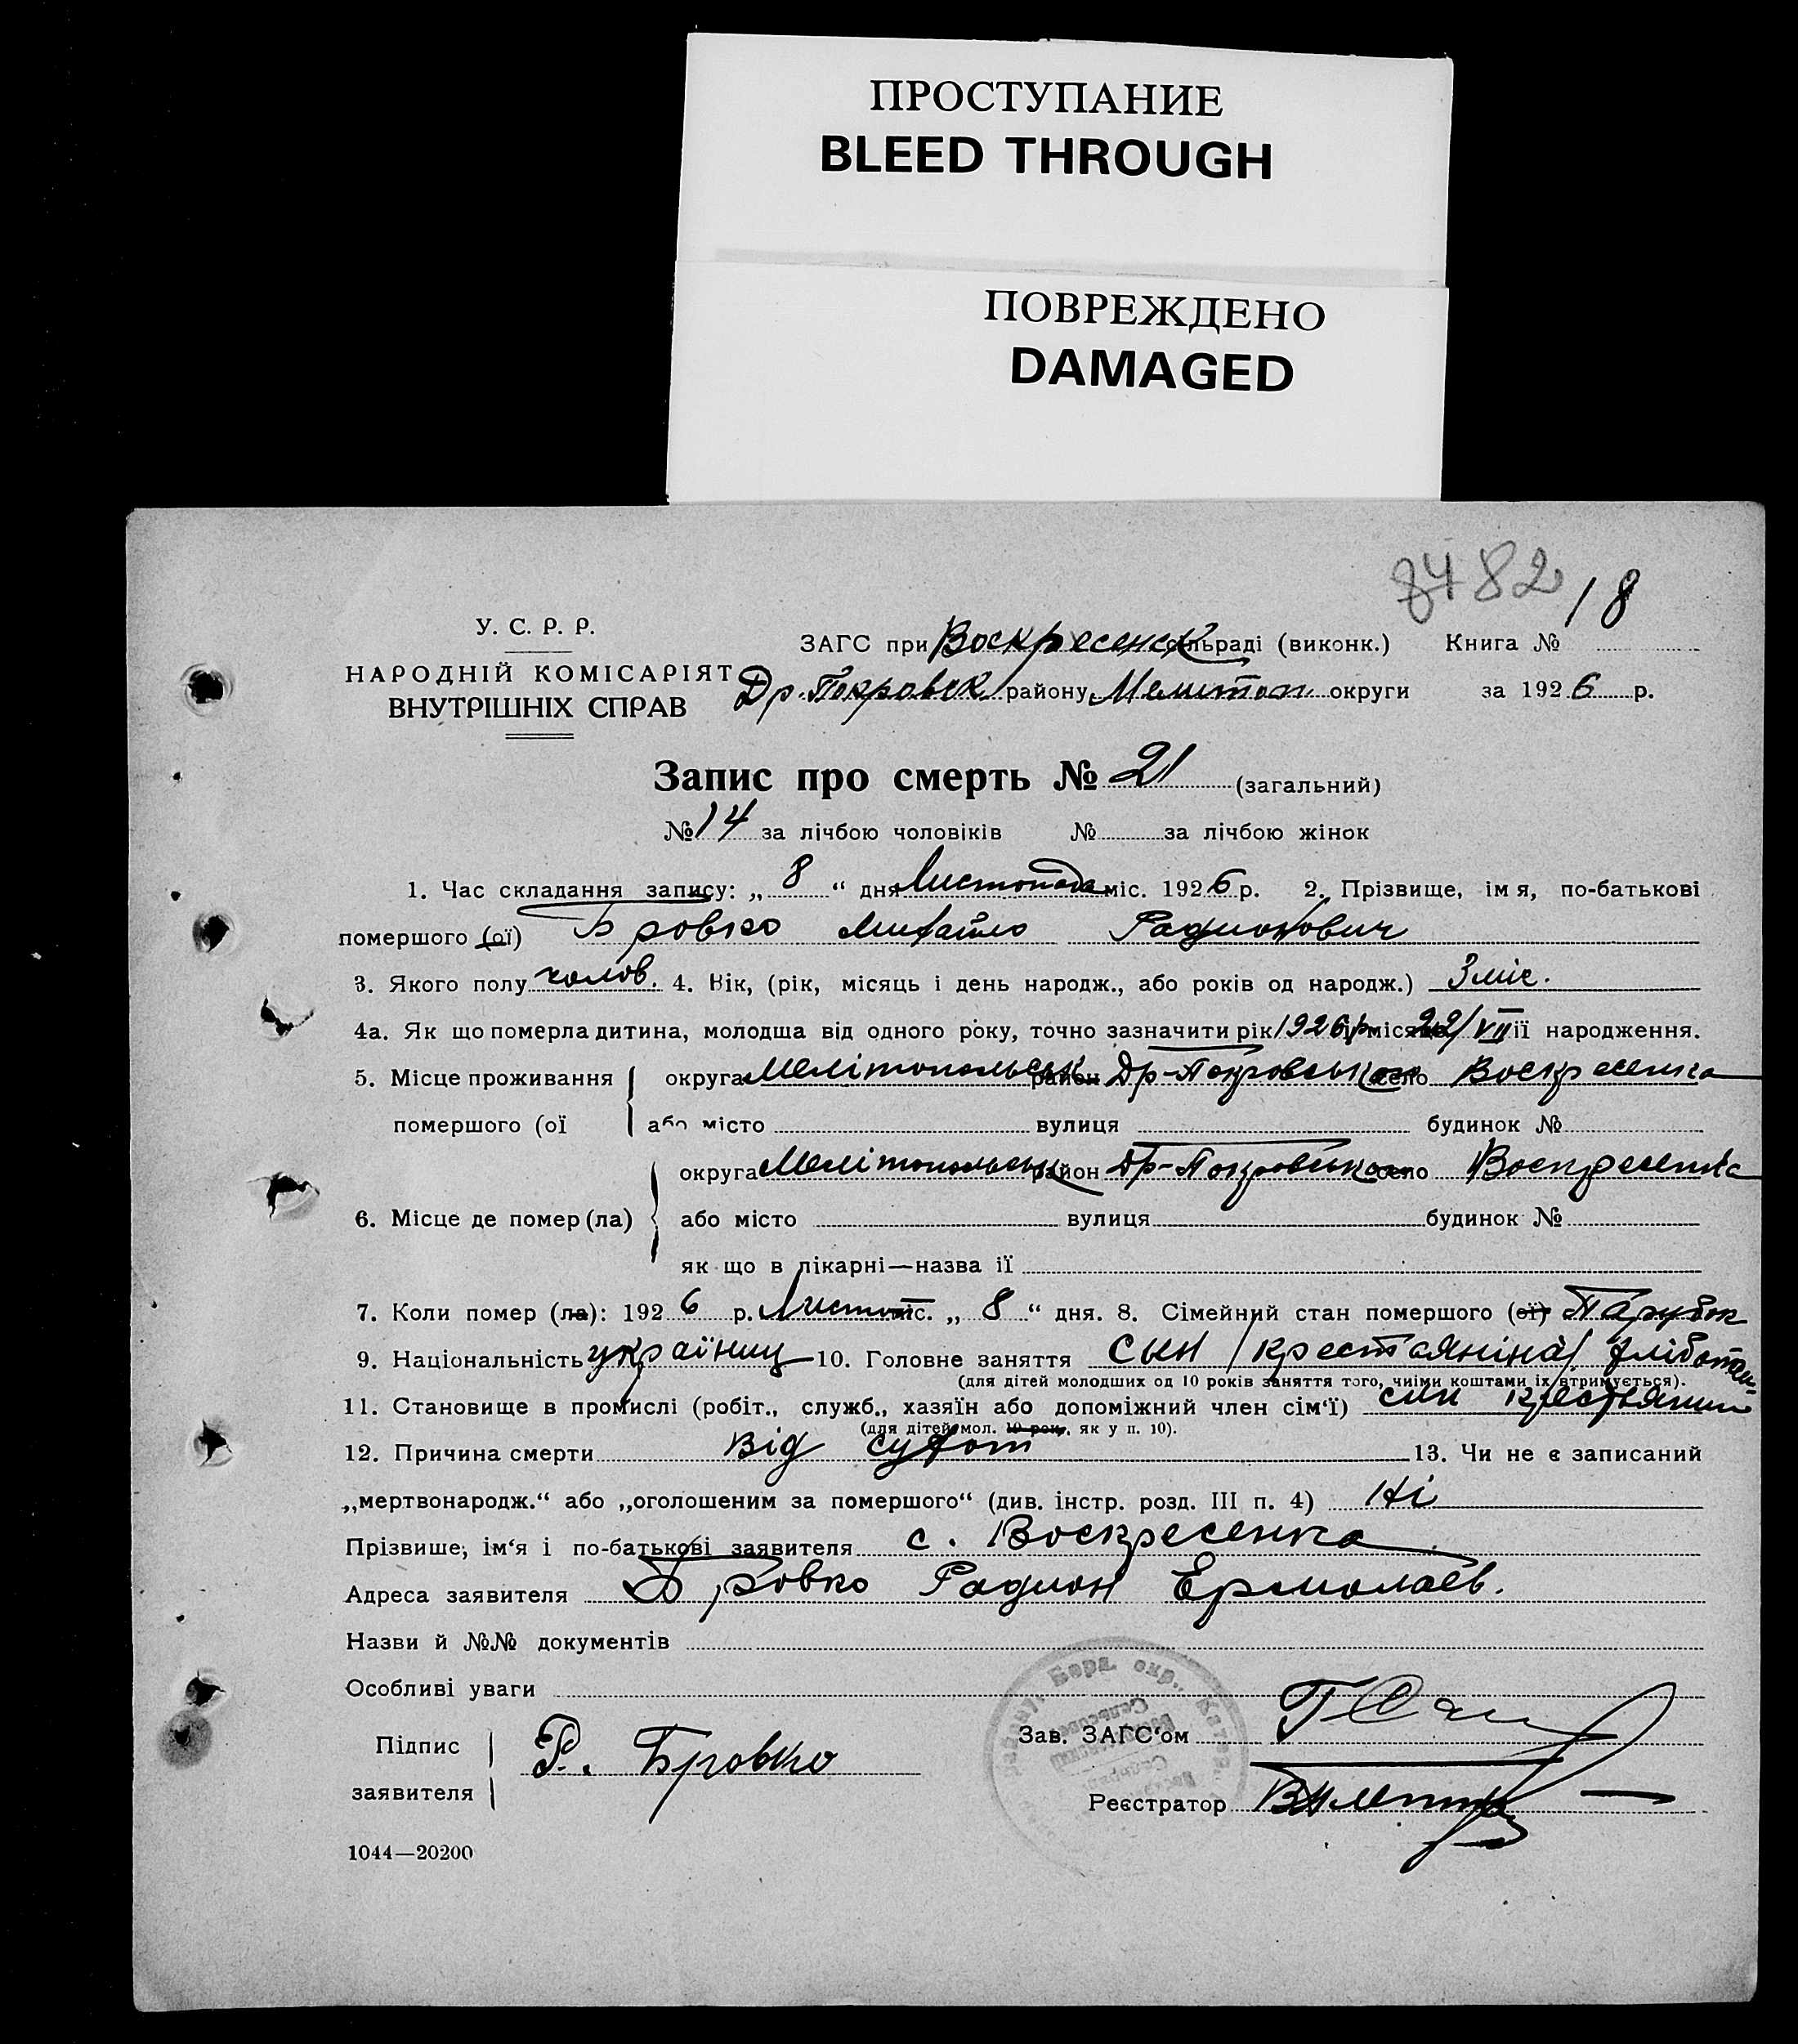 ПРОСТУПАНИЕ
BLEED THROUGH
ПОВРЕЖДЕНО
DAMAGED
8482
18
У. С. Р. Р.
НАРОДНІЙ КОМІСАРІЯТ
ВНУТРІШНІХ СПРАВ
ЗАГС при Воскресенск сільраді (виконк.) Книга №
Др.-Покровск району Мелитоп округи за 1926 р.
Запис про смерть № 21 (загальний)
№ 14 за лічбою чоловіків № за лічбою жінок
1. Час складання запису: „ 8 “ дня Листопада міс. 1926 р. 2. Прізвище, імя, по-батькові
помершого (ої) Бровко Михайло Радионович
3. Якого полу чолов. 4. Вік, (рік, місяць і день народж., або років од народж.) 3 міс.
4а. Як що померла дитина, молодша від одного року, точно зазначити рік 1926 р місяць 22/VII її народження.
5. Місце проживання округа Мелітопольськ район Др-Покровськ село Воскресенка
помершого (ої або місто вулиця будинок №
округа Мелітопольськ район Др-Покровськ село Воскресенка
6. Місце де помер (ла) або місто вулиця будинок №
як що в лікарні—назва ії
7. Коли помер (ла): 1926 р. Листоп міс. „ 8 “ дня. 8. Сімейний стан помершого (ої) Парубок
9. Національність українец 10. Головне заняття сын /крестьяніна/ хлібопаш-
(для дітей молодших од 10 років заняття того, чиїми коштами їх втримується).
11. Становище в промислі (робіт., служб., хазяїн або допоміжний член сім‘ї) син крестьянин
(для дітей мол. 10 рок., як у п. 10).
12. Причина смерти Від сухот 13. Чи не є записаний
„мертвонародж.“ або „оголошеним за помершого“ (див. інстр. розд. III п. 4) Ні
Прізвище, ім‘я і по-батькові заявителя с. Воскресенка
Адреса заявителя Бровко Радион Ермолаєв.
Назви й №№ документів
Особливі уваги
Підпис
заявителя
Р. Бровко
Зав. ЗАГС‘ом
Реєстратор
1044—20200